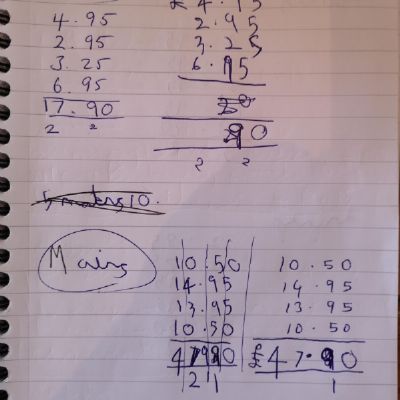 4.95
2.95
3.25
6.95
17.90
2 2
£4.95
2.95
3.25
6.95
90
2 2
Mains
10.50
14.95
13.95
10.50
47.90
2 1
10.50
14.95
13.95
10.50
£47.90
1